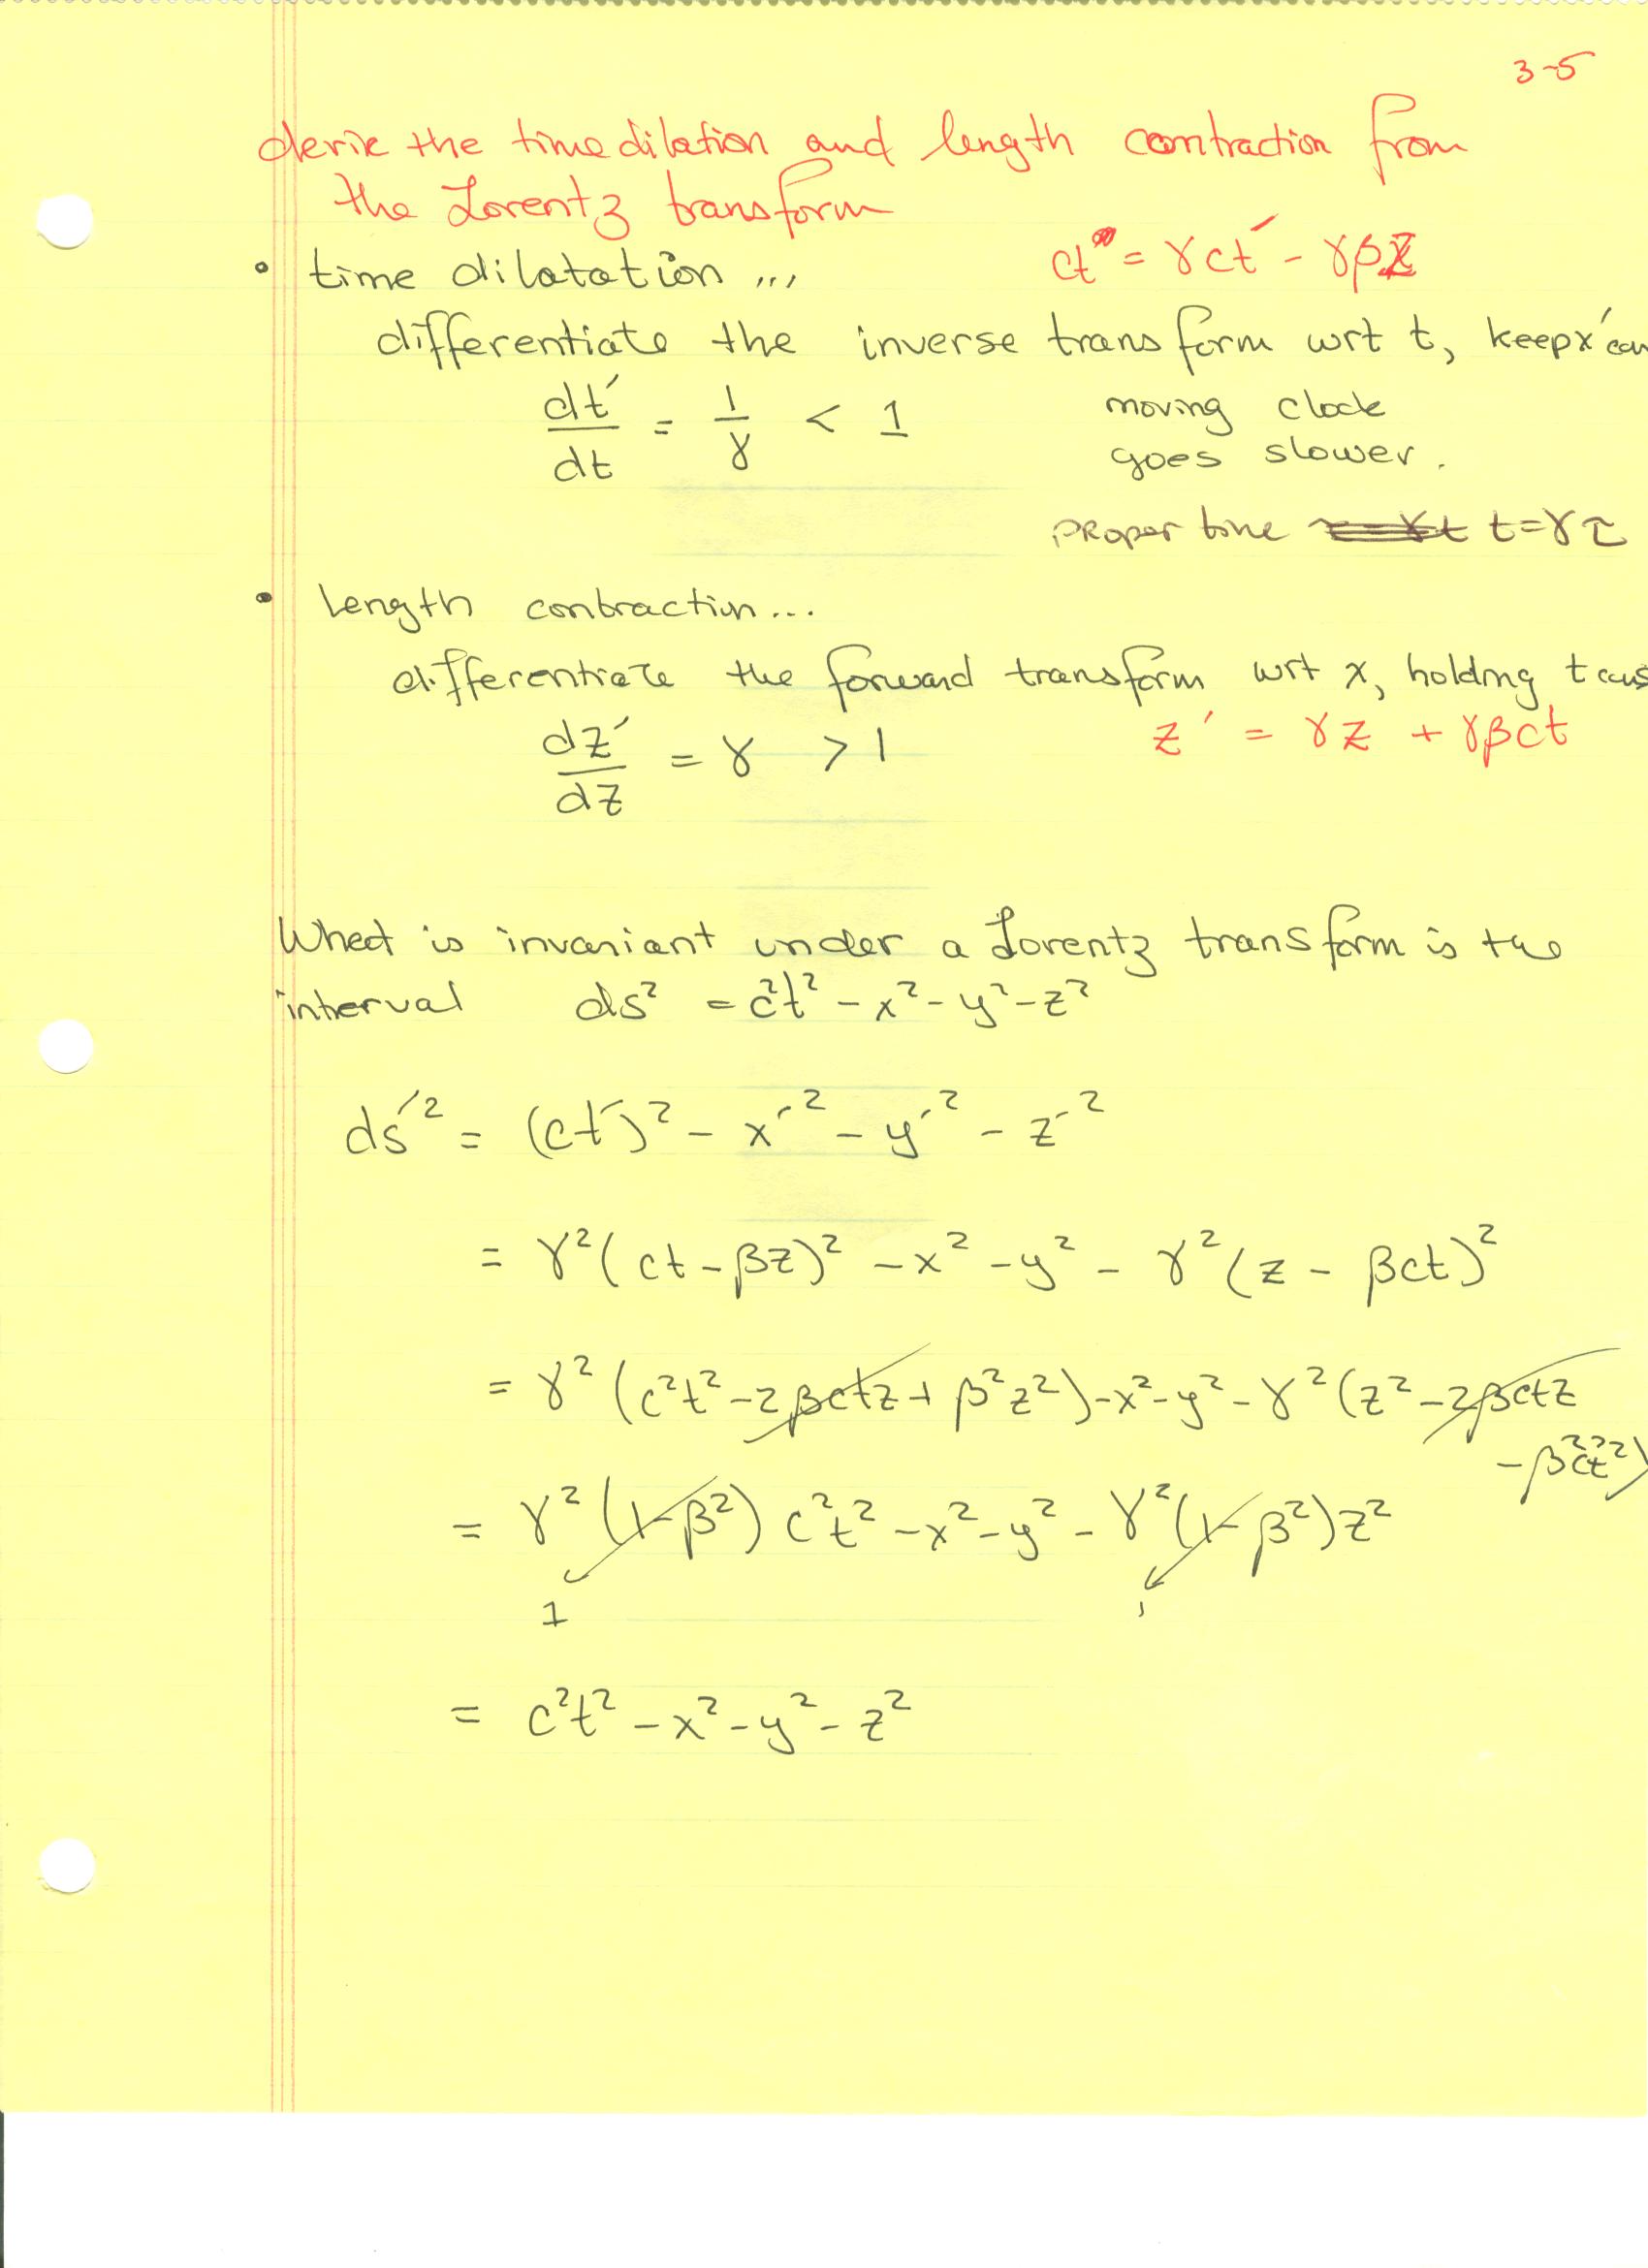 3-5
derive the time dilation and length contraction from
the Lorentz transform
• time dilatation ...
ct = γct′ - γβz
differentiate the inverse transform wrt t, keep x′ con
dt′/dt = 1/γ < 1
moving clock
goes slower.
proper time t=γτ
• length contraction...
differentiate the forward transform wrt x, holding t cons
dz′/dz = γ > 1
z′ = γz + γβct
What is invariant under a Lorentz transform is the
interval ds² = c²t² - x² - y² - z²
ds′² = (ct′)² - x′² - y′² - z′²
= γ²(ct - βz)² - x² - y² - γ²(z - βct)²
= γ²(c²t² - 2βctz + β²z²) - x² - y² - γ²(z² - 2βctz
- β²c²t²)
= γ²(1-β²) c²t² - x² - y² - γ²(1-β²)z²
1 1
= c²t² - x² - y² - z²